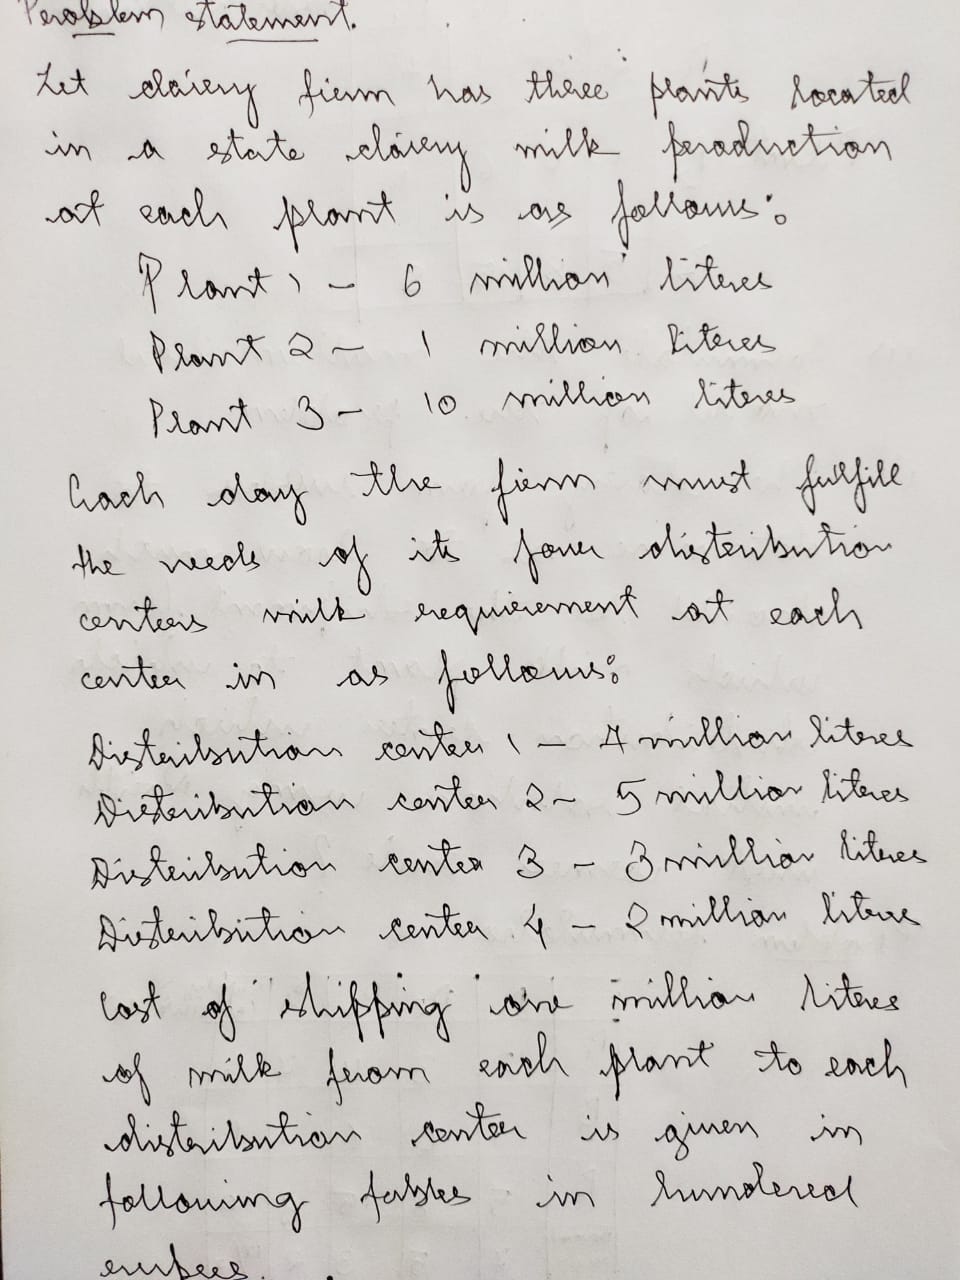 Problem statement.
Let dairy firm has three plants located
in a state dairy milk production
at each plant is as follows:
Plant 1 - 6 million liters
Plant 2 - 1 million liters
Plant 3 - 10 million liters
Each day the firm must fulfill
the needs of its four distribution
centers milk requirement at each
center in as follows:
Distribution center 1 - 7 million liters
Distribution center 2 - 5 million liters
Distribution center 3 - 3 million liters
Distribution center 4 - 2 million liters
Cost of shipping one million liters
of milk from each plant to each
distribution center is given in
following tables in hundered
rupees.